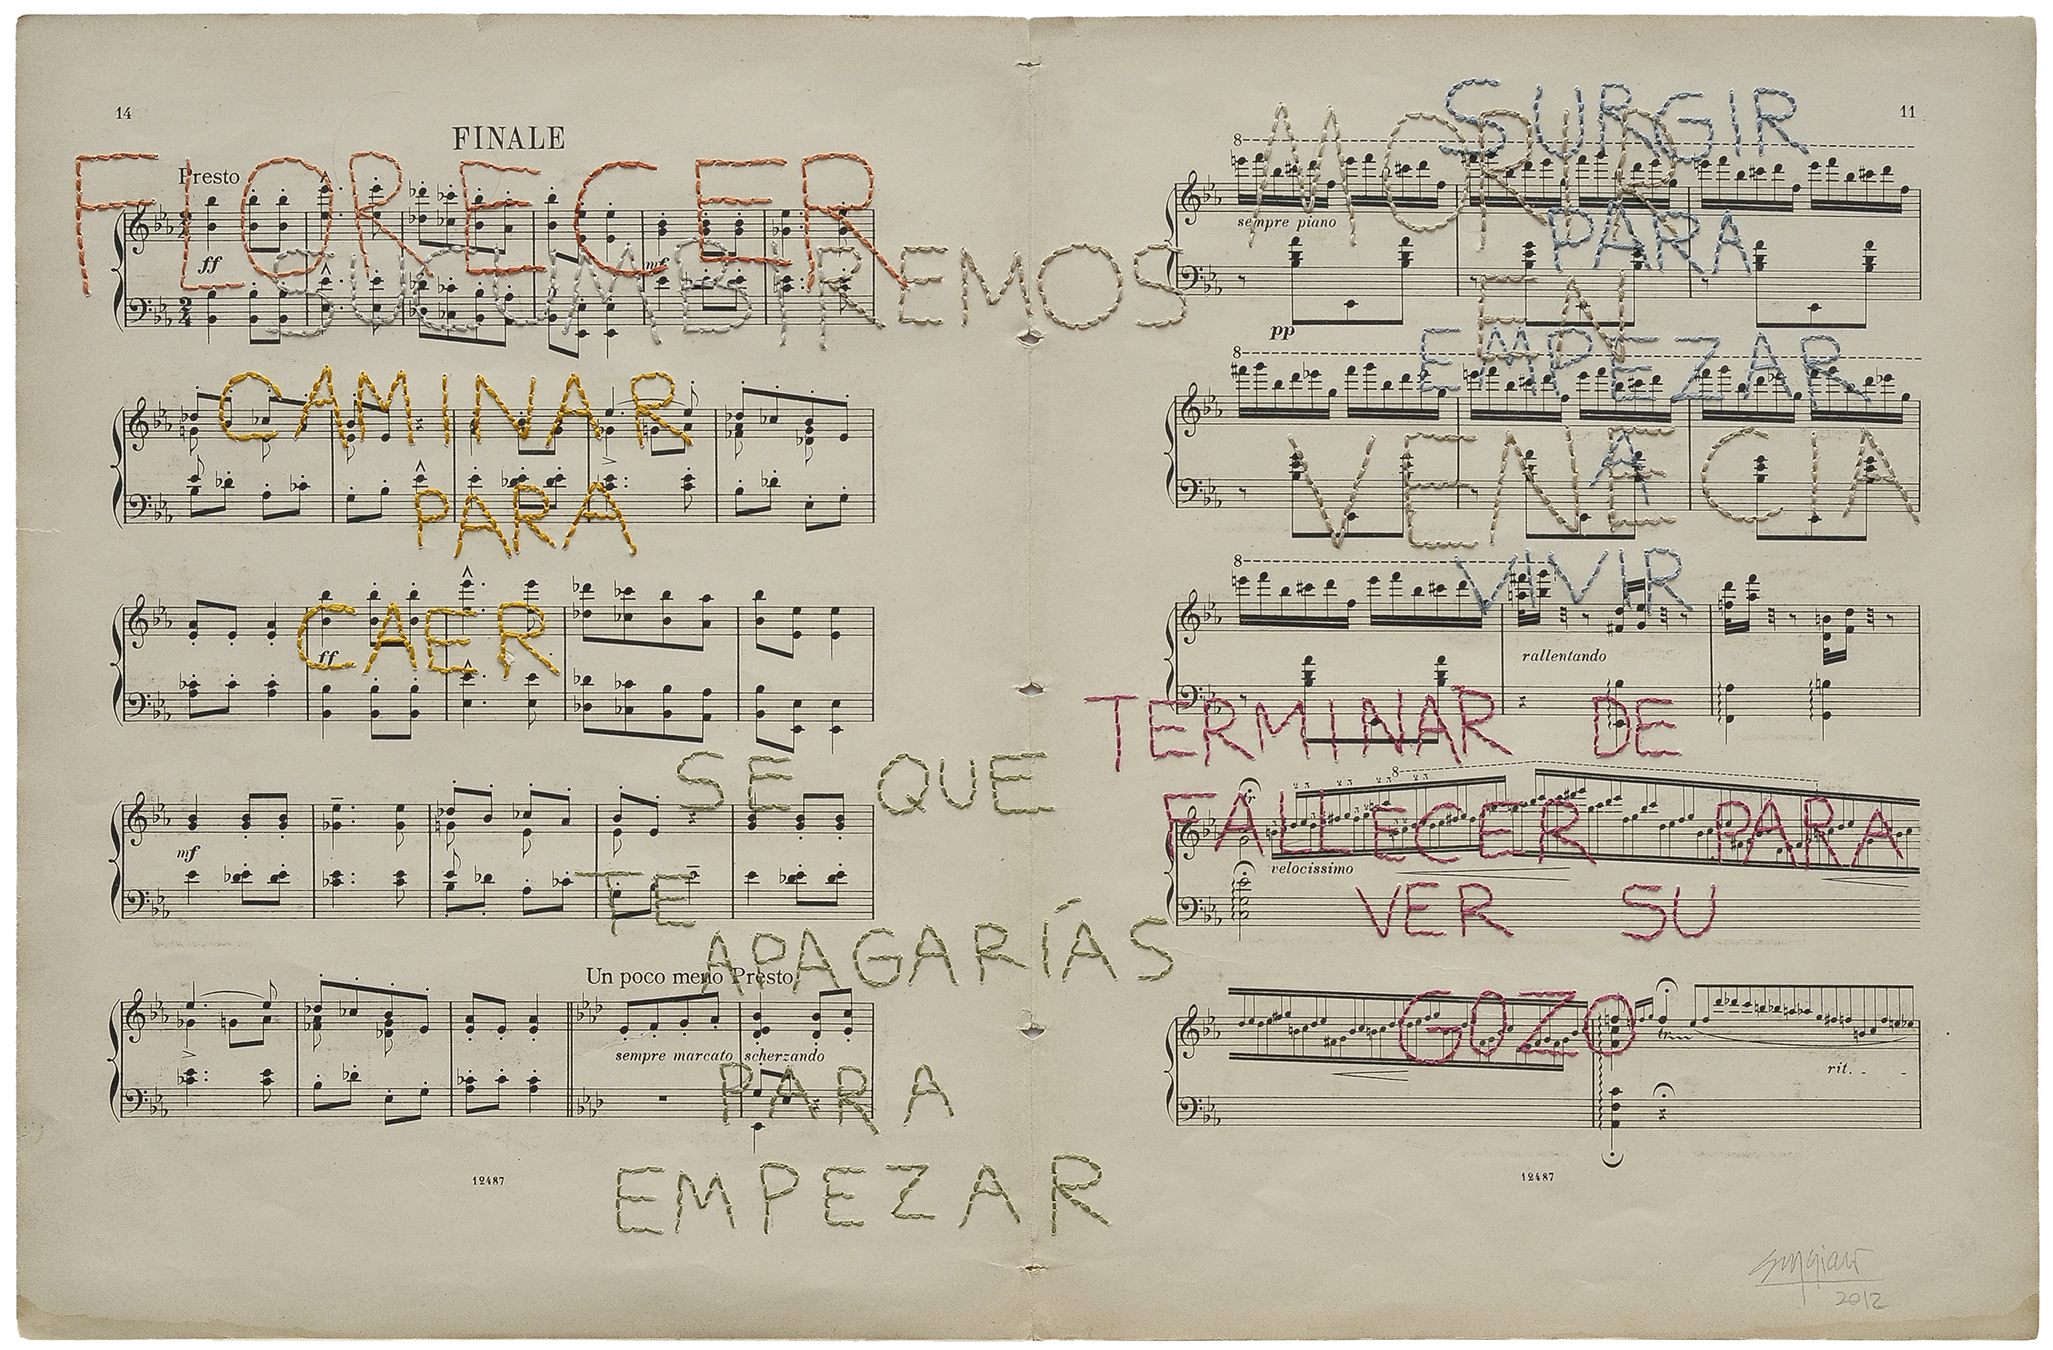 14
FINALE
FLORECER
Presto
ff
mf
SUCUMBIREMOS
CAMINAR
PARA
CAER
ff
SE QUE
mf
TE
APAGARÍAS
Un poco meno Presto
sempre marcato scherzando
PARA
EMPEZAR
12487
11
SURGIR
MORIR
8
sempre piano
PARA
EN
pp
EMPEZAR
8
A
VENECIA
VIVIR
8
rallentando
TERMINAR DE
8
FALLECER PARA
velocissimo
VER SU
GOZO
rit.
12487
2012